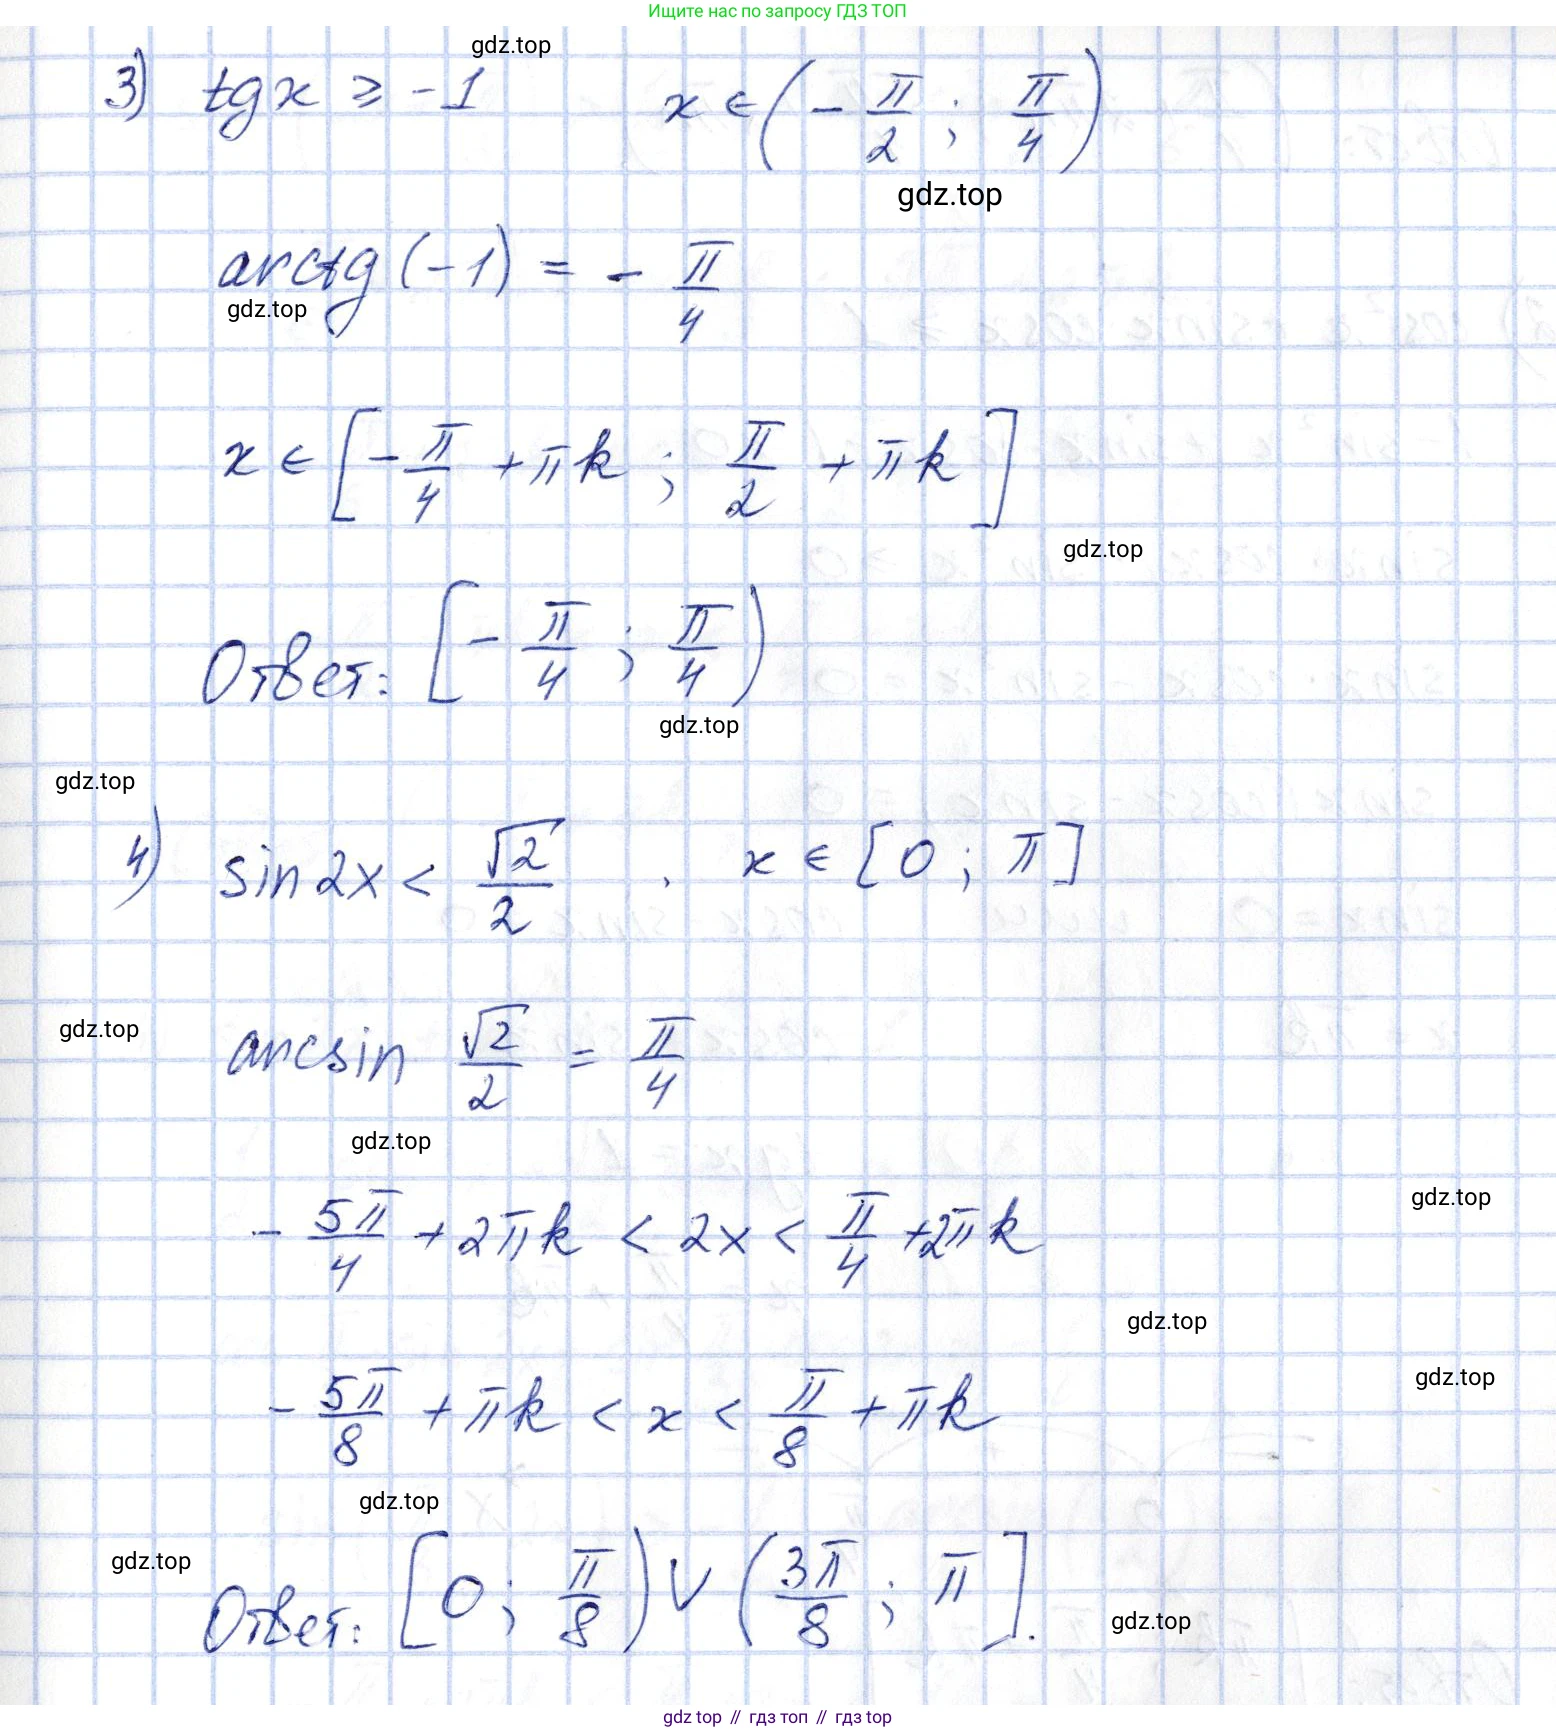 Ищите нас по запросу ГДЗ ТОП
gdz.top
3) tg x ⩾ -1   x ∈ (-π/2; π/4)
gdz.top
arctg (-1) = - π/4
gdz.top
x ∈ [-π/4 + πk; π/2 + πk]
gdz.top
Ответ: [-π/4; π/4)
gdz.top
gdz.top
4) sin 2x < √2/2, x ∈ [0; π]
gdz.top
arcsin √2/2 = π/4
gdz.top
gdz.top
- 5π/4 + 2πk < 2x < π/4 + 2πk
gdz.top
gdz.top
- 5π/8 + πk < x < π/8 + πk
gdz.top
gdz.top
Ответ: [0; π/8) ∨ (3π/8; π].
gdz.top
gdz top // гдз топ // гдз top